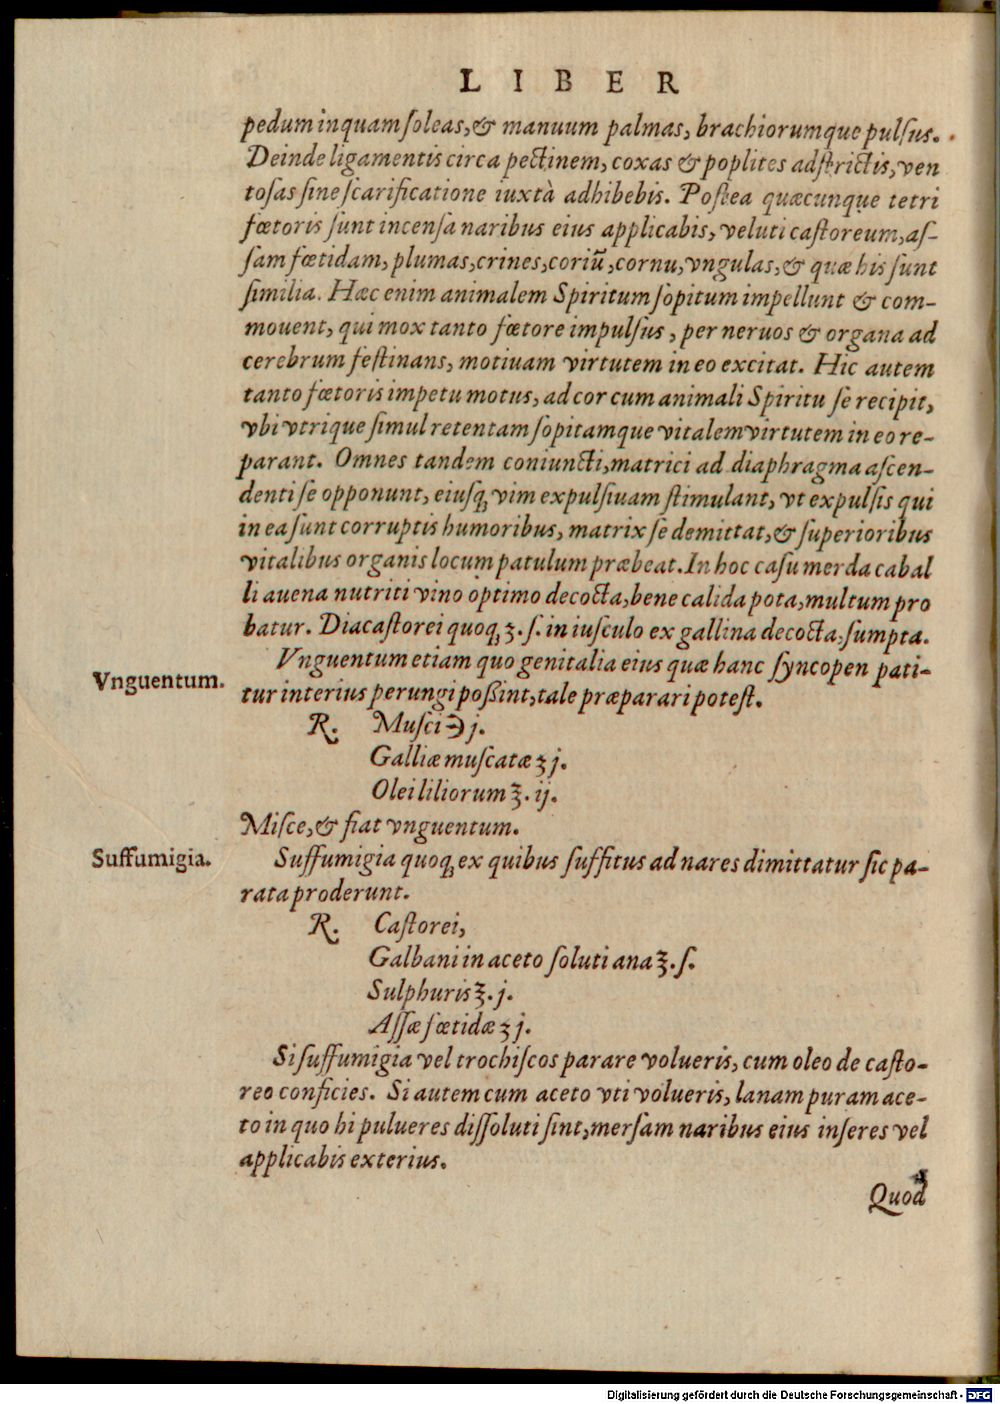 LIBER
pedum inquam ſoleas, & manuum palmas, brachiorumque pulſus.
Deinde ligamentis circa pectinem, coxas & poplites adſtrictis, ven
toſas ſine ſcarificatione iuxtà adhibebis. Poſtea quæcunque tetri
fœtoris ſunt incenſa naribus eius applicabis, veluti caſtoreum, aſ-
ſam fœtidam, plumas, crines, coriũ, cornu, vngulas, & quæ his ſunt
ſimilia. Hæc enim animalem Spiritum ſopitum impellunt & com-
mouent, qui mox tanto fœtore impulſus, per neruos & organa ad
cerebrum feſtinans, motiuam virtutem in eo excitat. Hic autem
tanto fœtoris impetu motus, ad cor cum animali Spiritu ſe recipit,
vbi vtrique ſimul retentam ſopitamque vitalem virtutem in eo re-
parant. Omnes tandem coniuncti, matrici ad diaphragma aſcen-
denti ſe opponunt, eiusq́ꝫ vim expulſiuam ſtimulant, vt expulſis qui
in ea ſunt corruptis humoribus, matrix ſe demittat, & ſuperioribus
vitalibus organis locum patulum præbeat. In hoc caſu merda cabal
li auena nutriti vino optimo decocta, bene calida pota, multum pro
batur. Diacaſtorei quoqꝫ ʒ. ſ. in iuſculo ex gallina decocta, ſumpta.
Vnguentum.
Vnguentum etiam quo genitalia eius quæ hanc ſyncopen pati-
tur interius perungi poßint, tale præparari poteſt.
℞. Muſci ℈ j.
Galliæ muſcatæ ʒ j.
Olei liliorum ℥. ij.
Miſce, & fiat vnguentum.
Suffumigia.
Suffumigia quoqꝫ ex quibus ſuffitus ad nares dimittatur ſic pa-
rata proderunt.
℞. Caſtorei,
Galbani in aceto ſoluti ana ℥. ſ.
Sulphuris ℥. j.
Aſſæ fœtidæ ʒ j.
Si ſuffumigia vel trochiſcos parare volueris, cum oleo de caſto-
reo conficies. Si autem cum aceto vti volueris, lanam puram ace-
to in quo hi pulueres diſſoluti ſint, merſam naribus eius inſeres vel
applicabis exterius.
Quod
Digitalisierung gefördert durch die Deutsche Forschungsgemeinschaft - DFG